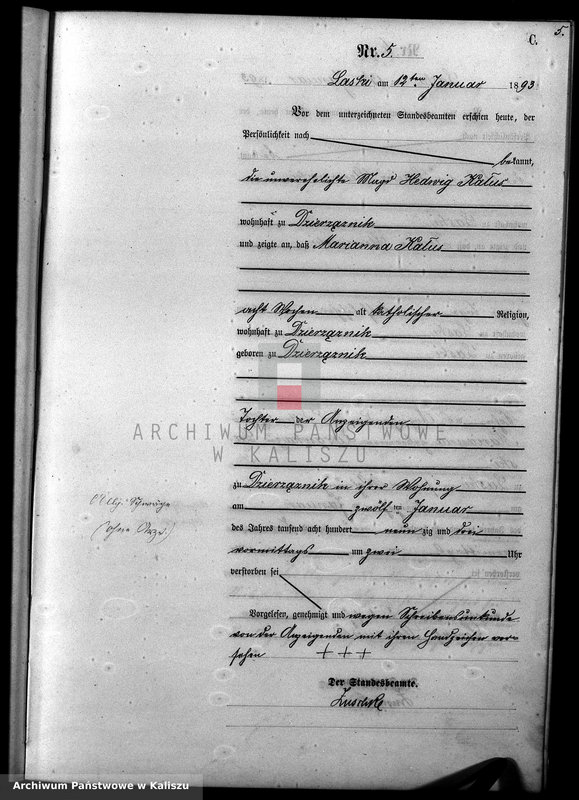 5.
C.
Nr. 5.
Laski am 12ten Januar 1893
Vor dem unterzeichneten Standesbeamten erschien heute, der
Persönlichkeit nach
bekannt,
die unverehelichte Magd Hedwig Kalus
wohnhaft zu Dzierzążnik
und zeigte an, daß Marianna Kalus
acht Wochen alt katholischer Religion,
wohnhaft zu Dzierzążnik
geboren zu Dzierzążnik
Tochter der Anzeigenden
ARCHIWUM PAŃSTWOWE
W KALISZU
zu Dzierzążnik in ihrer Wohnung
am zwölften Januar
des Jahres tausend acht hundert neun zig und drei
vormittags um zwei Uhr
verstorben sei
Allg. Schwäche
(ohne Arzt.)
Vorgelesen, genehmigt und wegen Schreibensunkunde
von der Anzeigenden mit ihren Handzeichen ver-
sehen +++
Der Standesbeamte.
Archiwum Państwowe w Kaliszu